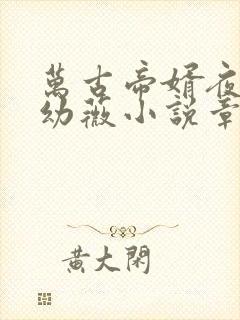 萬古帝婿夜
幼薇小説章
黃大閑